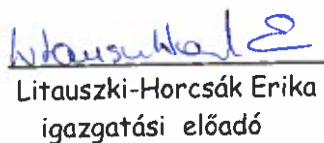 Litauszki-Horcsák Erika
igazgatási előadó